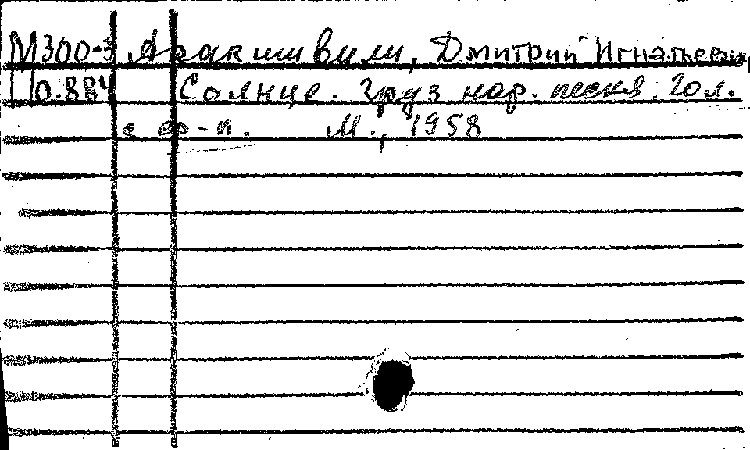 М300-3 Аракишвили, Дмитрий Игнатьевич,
П0.884 Солнце. Груз нар. песня. Гол.
с ф-п. М., 1958